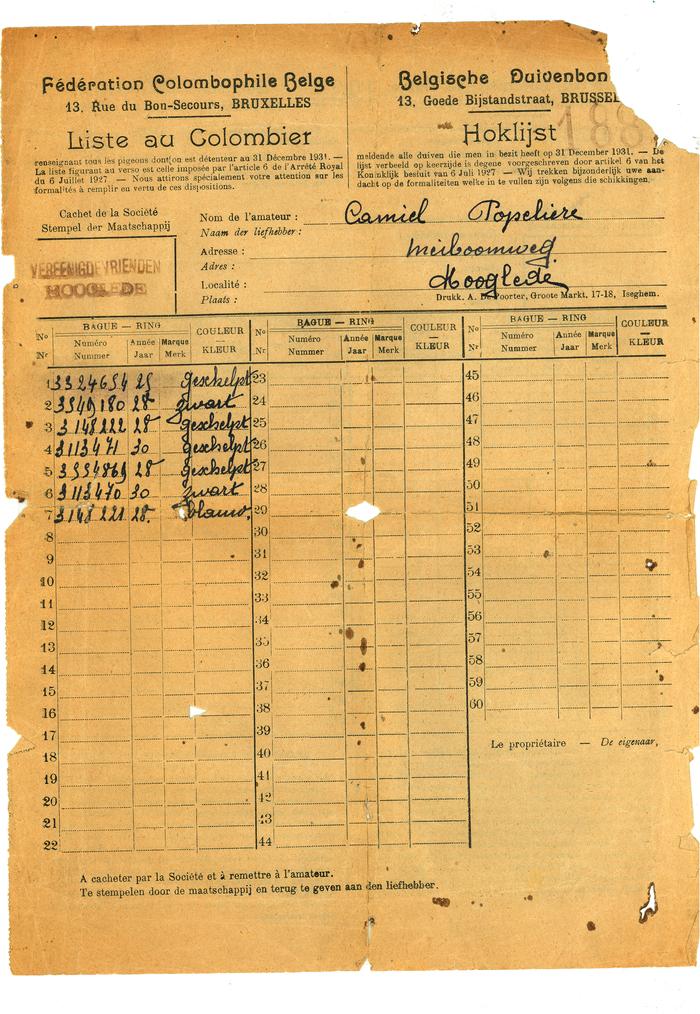 Fédération Colombophile Belge
13, Rue du Bon-Secours, BRUXELLES
Liste au Colombier
renseignant tous les pigeons dont on est détenteur au 31 Décembre 1931. —
La liste figurant au verso est celle imposée par l'article 6 de l'Arrêté Royal
du 6 Juillet 1927. — Nous attirons spécialement votre attention sur les
formalités à remplir en vertu de ces dispositions.
Belgische Duivenbon
13, Goede Bijstandstraat, BRUSSEL
Hoklijst 188
meldende alle duiven die men in bezit heeft op 31 December 1931. — De
lijst verbeeld op keerzijde is degene voorgeschreven door artikel 6 van het
Koninklijk besluit van 6 Juli 1927 — Wij trekken bijzonderlijk uwe aan-
dacht op de formaliteiten welke in te vullen zijn volgens die schikkingen.
Cachet de la Société
Stempel der Maatschappij
VEREENIGDE VRIENDEN
HOOGLEDE
Nom de l'amateur : Camiel Popeliere
Naam der liefhebber :
Adresse : meiboomweg
Adres :
Localité : Hooglede
Plaats :
Drukk. A. De Poorter, Groote Markt, 17-18, Iseghem.
No BAGUE — RING COULEUR No BAGUE — RING COULEUR No BAGUE — RING COULEUR
Numéro Année Marque — Numéro Année Marque — Numéro Année Marque —
Nr Nummer Jaar Merk KLEUR Nr Nummer Jaar Merk KLEUR Nr Nummer Jaar Merk KLEUR
1 3324654 25 geschelpt 23 45
2 3549180 28 zwart 24 46
3 3148222 28 geschelpt 25 47
4 3113471 30 geschelpt 26 48
5 3554869 28 geschelpt 27 49
6 3113470 30 zwart 28 50
7 3148221 28. blauw. 29 51
8 30 52
9 31 53
10 32 54
11 33 55
12 34 56
13 35 57
14 36 58
15 37 59
16 38 60
17 39
18 40
19 41
20 42
21 43
22 44
Le propriétaire — De eigenaar,
A cacheter par la Société et à remettre à l'amateur.
Te stempelen door de maatschappij en terug te geven aan den liefhebber.